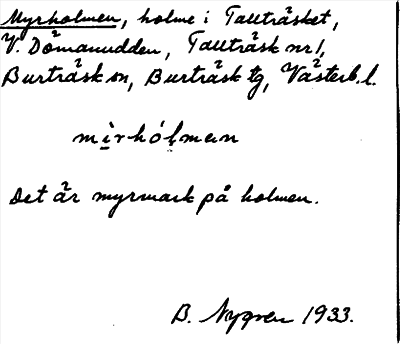 Myrholmen, holme i Tallträsket,
V. Dömanudden, Tallträsk nr 1,
Burträsk sn, Burträsk tg, Västerb. l.
mirhólmαn
Det är myrmark på holmen.
B. Nygren 1933.